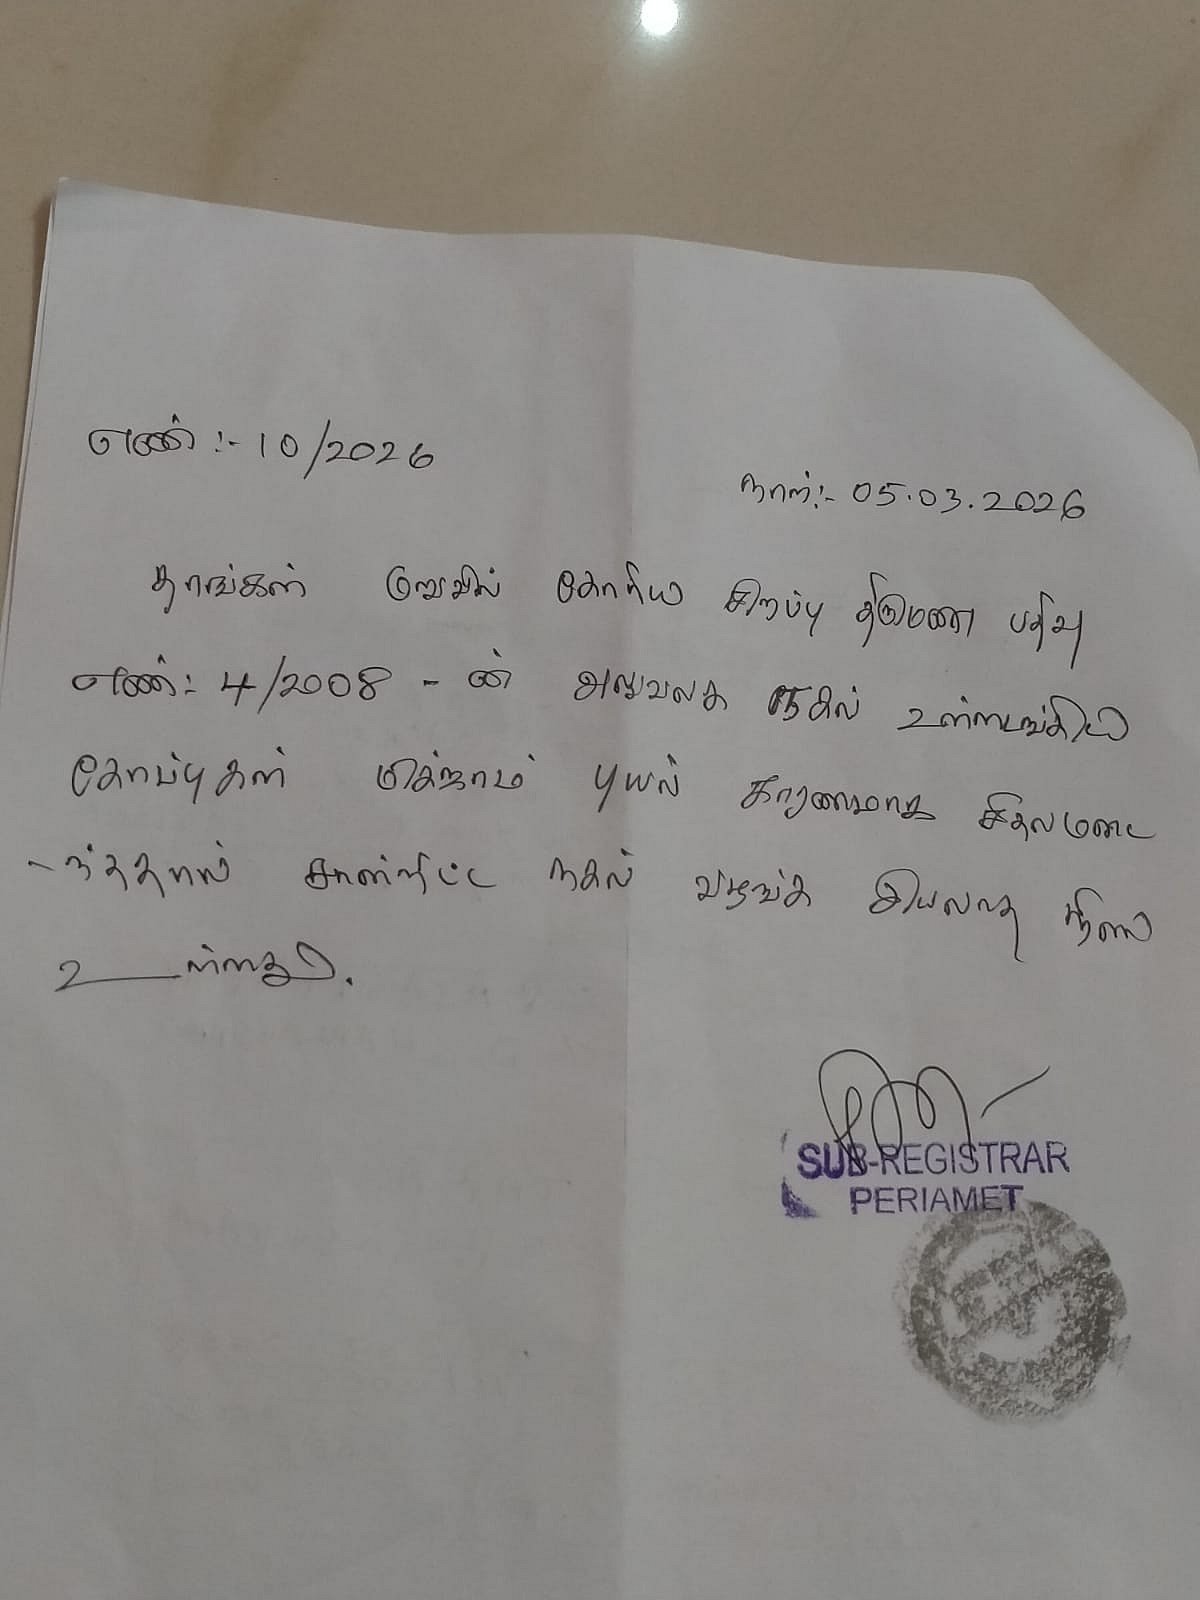 எண்:- 10/2026
நாள்:- 05.03.2026
தாங்கள் மனுவில் கோரிய சிறப்பு திருமண பதிவு
எண்: 4/2008 - ன் அலுவலக நகல் உள்ளடங்கிய
கோப்புகள் மிக்ஜாம் புயல் காரணமாக சிதலமடை
-ந்ததால் சான்றிட்ட நகல் வழங்க இயலாத நிலை
உள்ளது.
SUB-REGISTRAR
PERIAMET